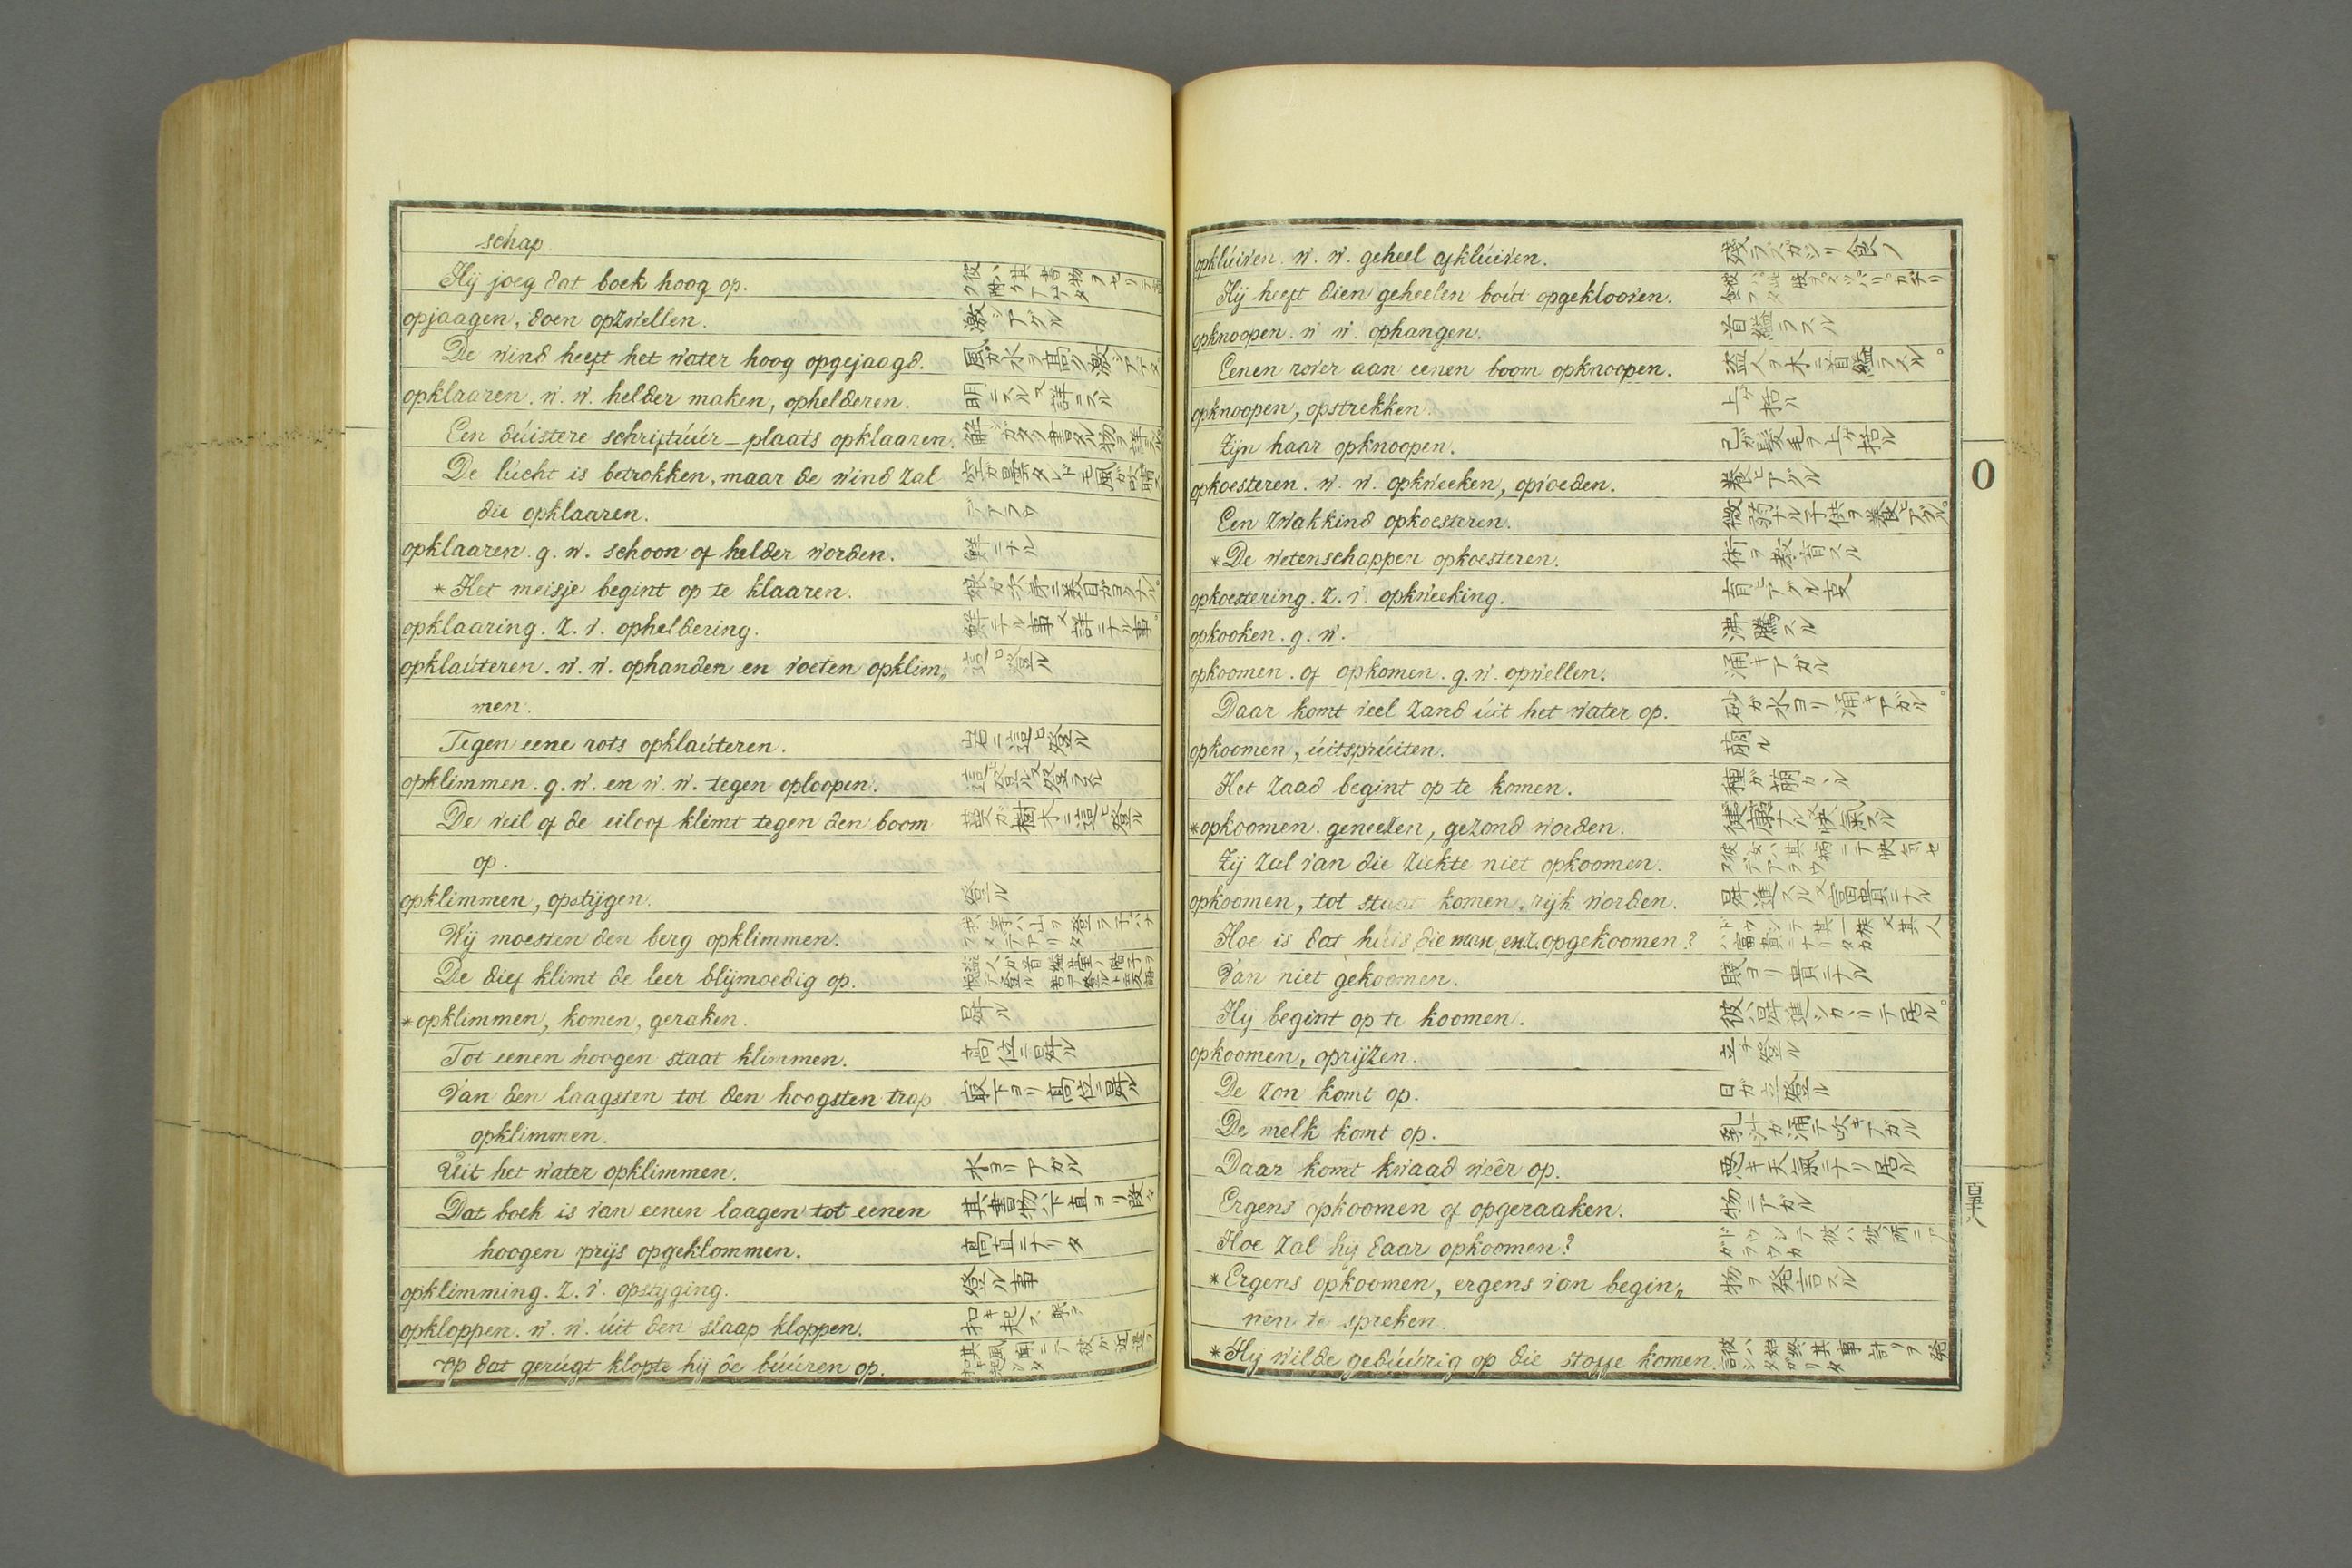 schap.
Hij joeg dat boek hoog op.
opjaagen, doen opzwellen. 激シアグル
De wind heeft het water hoog opgejaagd. 風ガ水ヲ高ク激シアゲタ
opklaaren. w. w. helder maken, ophelderen. 明ニスル又詳ニスル
Een dúistere schriftúúr-plaats opklaaren.
De lúcht is betrokken, maar de wind zal
die opklaaren.
opklaaren. g. w. schoon of helder worden. 鮮ニナル
*Het meisje begint op te klaaren.
opklaaring. z. v. opheldering. 鮮ニナル事又詳ニナル事
opklaúteren. w. w. ophanden en voeten opklim„ 這ヒ登ル
men.
Tegen eene rots opklaúteren. 岩ニ這ヒ登ル
opklimmen. g. w. en w. w. tegen oploopen.
De veil of de eiloof klimt tegen den boom 樹木ニ這ヒ登ル
op.
opklimmen, opstijgen. 登ル
Wij moesten den berg opklimmen.
De dief klimt de leer blijmoedig op.
*opklimmen, komen, geraken. 昇ル
Tot eenen hoogen staat klimmen. 高位ニ昇ル
Van den laagsten tot den hoogsten trap 最下ヨリ高位ニ昇ル
opklimmen.
Uit het water opklimmen. 水ヨリアガル
Dat boek is van eenen laagen tot eenen 其書物ハ下直ヨリ段々
hoogen prijs opgeklommen. 高直ニナリタ
opklimming. z. v. opstyging. 登ル事
opkloppen. w. w. úit den slaap kloppen.
op dat gerúgt klopte hij de búúren op.
opklúiven. w. w. geheel afklúiven. 残ラズカジリ食フ
Hij heeft dien geheelen boút opgeklooven.
opknoopen. w w. ophangen. 首縊ラスル
Eenen rover aan eenen boom opknoopen. 盗人ヲ木ニ首縊ラスル。
opknoopen, opstrekken. 上ゲ括ル
Zijn haar opknoopen. 己ガ髪毛ヲ上ゲ括ル
opkoesteren. w. w. opkweeken, opvoeden. 養ヒアグル
Een zwakkind opkoesteren. 微弱ナル子供ヲ養ヒアグル。
*De wetenschappen opkoesteren. 術ヲ教育スル
opkoestering. z. v. opkweeking. 育ヒアグル事
opkooken. g. w. 沸騰スル
opkoomen. of opkomen. g. w. opwellen. 涌キアガル
Daar komt veel zand úit het water op. 砂ガ水ヨリ涌キアガル。
opkoomen, úitsprúiten. 萠ル
Het zaad begint op te komen. 種ガ萠カヽル
*opkoomen. geneezen, gezond worden. 健康ナル又快氣スル
Zij zal van die ziekte niet opkoomen. 彼女ハ其病ニテ快気セヌデアラウ
opkoomen, tot staat komen, rijk worden. 昇進スル又富貴ニナル
Hoe is dat húis, die man, enz. opgekoomen? ドウシテ其一族又其人ハ富貴ニナリタカ
Van niet gekoomen. 賤ヨリ貴ニナル
Hij begint op te koomen. 彼ハ昇進シカヽリテ居ル。
opkoomen, oprijzen. 立チ登ル
De zon komt op. 日ガ立登ル
De melk komt op. 乳汁ガ涌テ吹キアガル
Daar komt kwaad weêr op. 悪キ天氣ニナリ居ル
Ergens opkoomen of opgeraaken. 物ニアガル
Hoe zal hij daar opkoomen? ドウシテ彼ハ彼所ニアガラウカ
*Ergens opkoomen, ergens van begin„ 物ヲ発言スル
nen te spreken.
*Hij wilde gedúúrig op die stoffe komen. 彼ハ始終其事計リヲ発言シタガリタ
O
百五十八